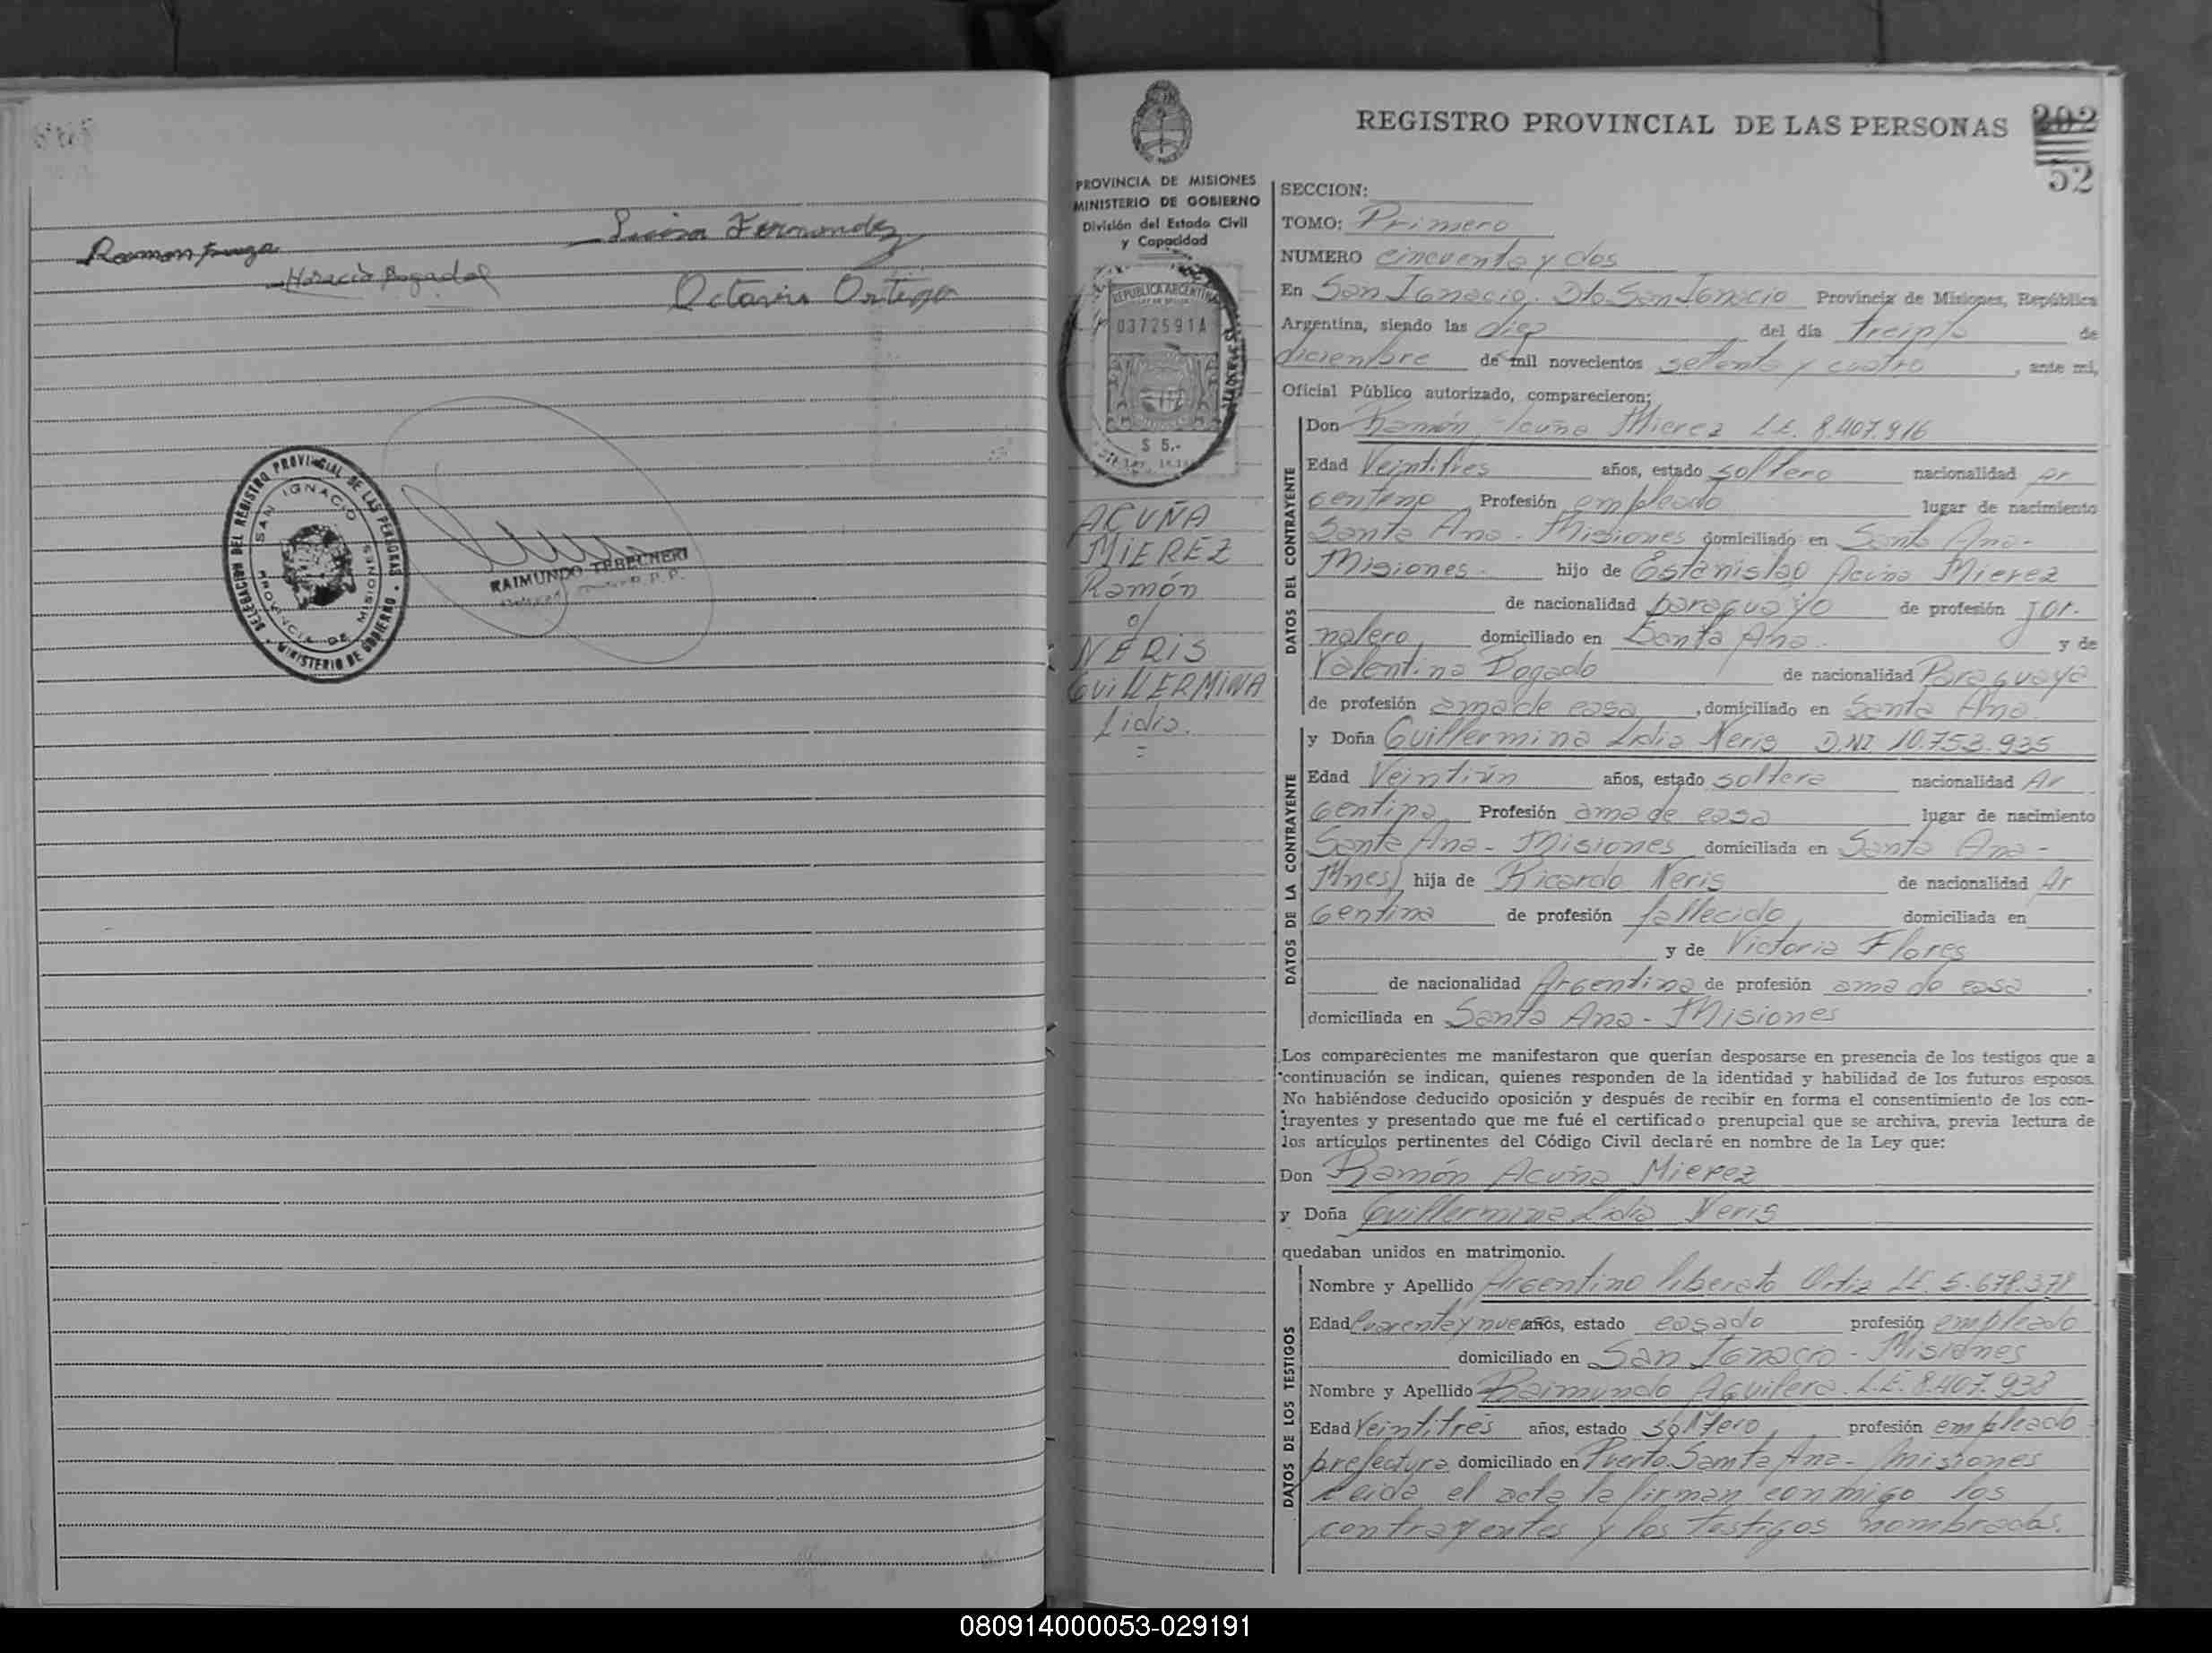 Luisa Fernandez
Ramon
Horacio Bogado
Octavio Ortega
DELEGACION DEL REGISTRO PROVINCIAL DE LAS PERSONAS
SAN IGNACIO
PROVINCIA DE MISIONES
MINISTERIO DE GOBIERNO
RAIMUNDO TEBECHERI
REGISTRO PROVINCIAL DE LAS PERSONAS
202
52
PROVINCIA DE MISIONES
MINISTERIO DE GOBIERNO
División del Estado Civil
y Capacidad
REPUBLICA ARGENTINA
0372591A
$ 5.-
ACUÑA
MIEREZ
Ramón
c/
NERIS
GUILLERMINA
Lidia.
SECCION:
TOMO: Primero
NUMERO cincuenta y dos
En San Ignacio. Dto San Ignacio Provincia de Misiones, República
Argentina, siendo las diez del día treinta de
diciembre de mil novecientos setenta y cuatro, ante mí,
Oficial Público autorizado, comparecieron;
DATOS DEL CONTRAYENTE
Don Ramón Acuña Mierez L.E. 8.407.916
Edad Veintitres años, estado soltero nacionalidad Ar
gentino Profesión empleado lugar de nacimiento
Santa Ana - Misiones domiciliado en Santa Ana-
Misiones- hijo de Estanislao Acuña Mierez
de nacionalidad paraguayo de profesión jor-
nalero domiciliado en Santa Ana. y de
Valentina Dogado de nacionalidad Paraguaya
de profesión ama de casa, domiciliado en Santa Ana.
DATOS DE LA CONTRAYENTE
y Doña Guillermina Lidia Neris D.NI 10.753.935
Edad Veintiún años, estado soltera nacionalidad Ar
gentina Profesión ama de casa lugar de nacimiento
Santa Ana- Misiones domiciliada en Santa Ana-
Mnes) hija de Ricardo Neris de nacionalidad Ar
gentina de profesión fallecido domiciliada en
y de Victoria Flores
de nacionalidad Argentina de profesión ama de casa,
domiciliada en Santa Ana- Misiones
Los comparecientes me manifestaron que querían desposarse en presencia de los testigos que a
continuación se indican, quienes responden de la identidad y habilidad de los futuros esposos.
No habiéndose deducido oposición y después de recibir en forma el consentimiento de los con-
trayentes y presentado que me fué el certificado prenupcial que se archiva, previa lectura de
los artículos pertinentes del Código Civil declaré en nombre de la Ley que:
Don Ramón Acuña Mierez
y Doña Guillermina Lidia Neris
quedaban unidos en matrimonio.
DATOS DE LOS TESTIGOS
Nombre y Apellido Argentino liberato Ortiz LE. 5.678.378
Edad Cuarenta y nueve años, estado casado profesión empleado
domiciliado en San Ignacio - Misiones
Nombre y Apellido Raimundo Aguilera. L.E. 8.407.938
Edad Veintitrés años, estado soltero profesión empleado
prefectura domiciliado en Puerto Santa Ana- Misiones
Leida el acta la firman conmigo los
contrayentes y los testigos nombrados.
080914000053-029191